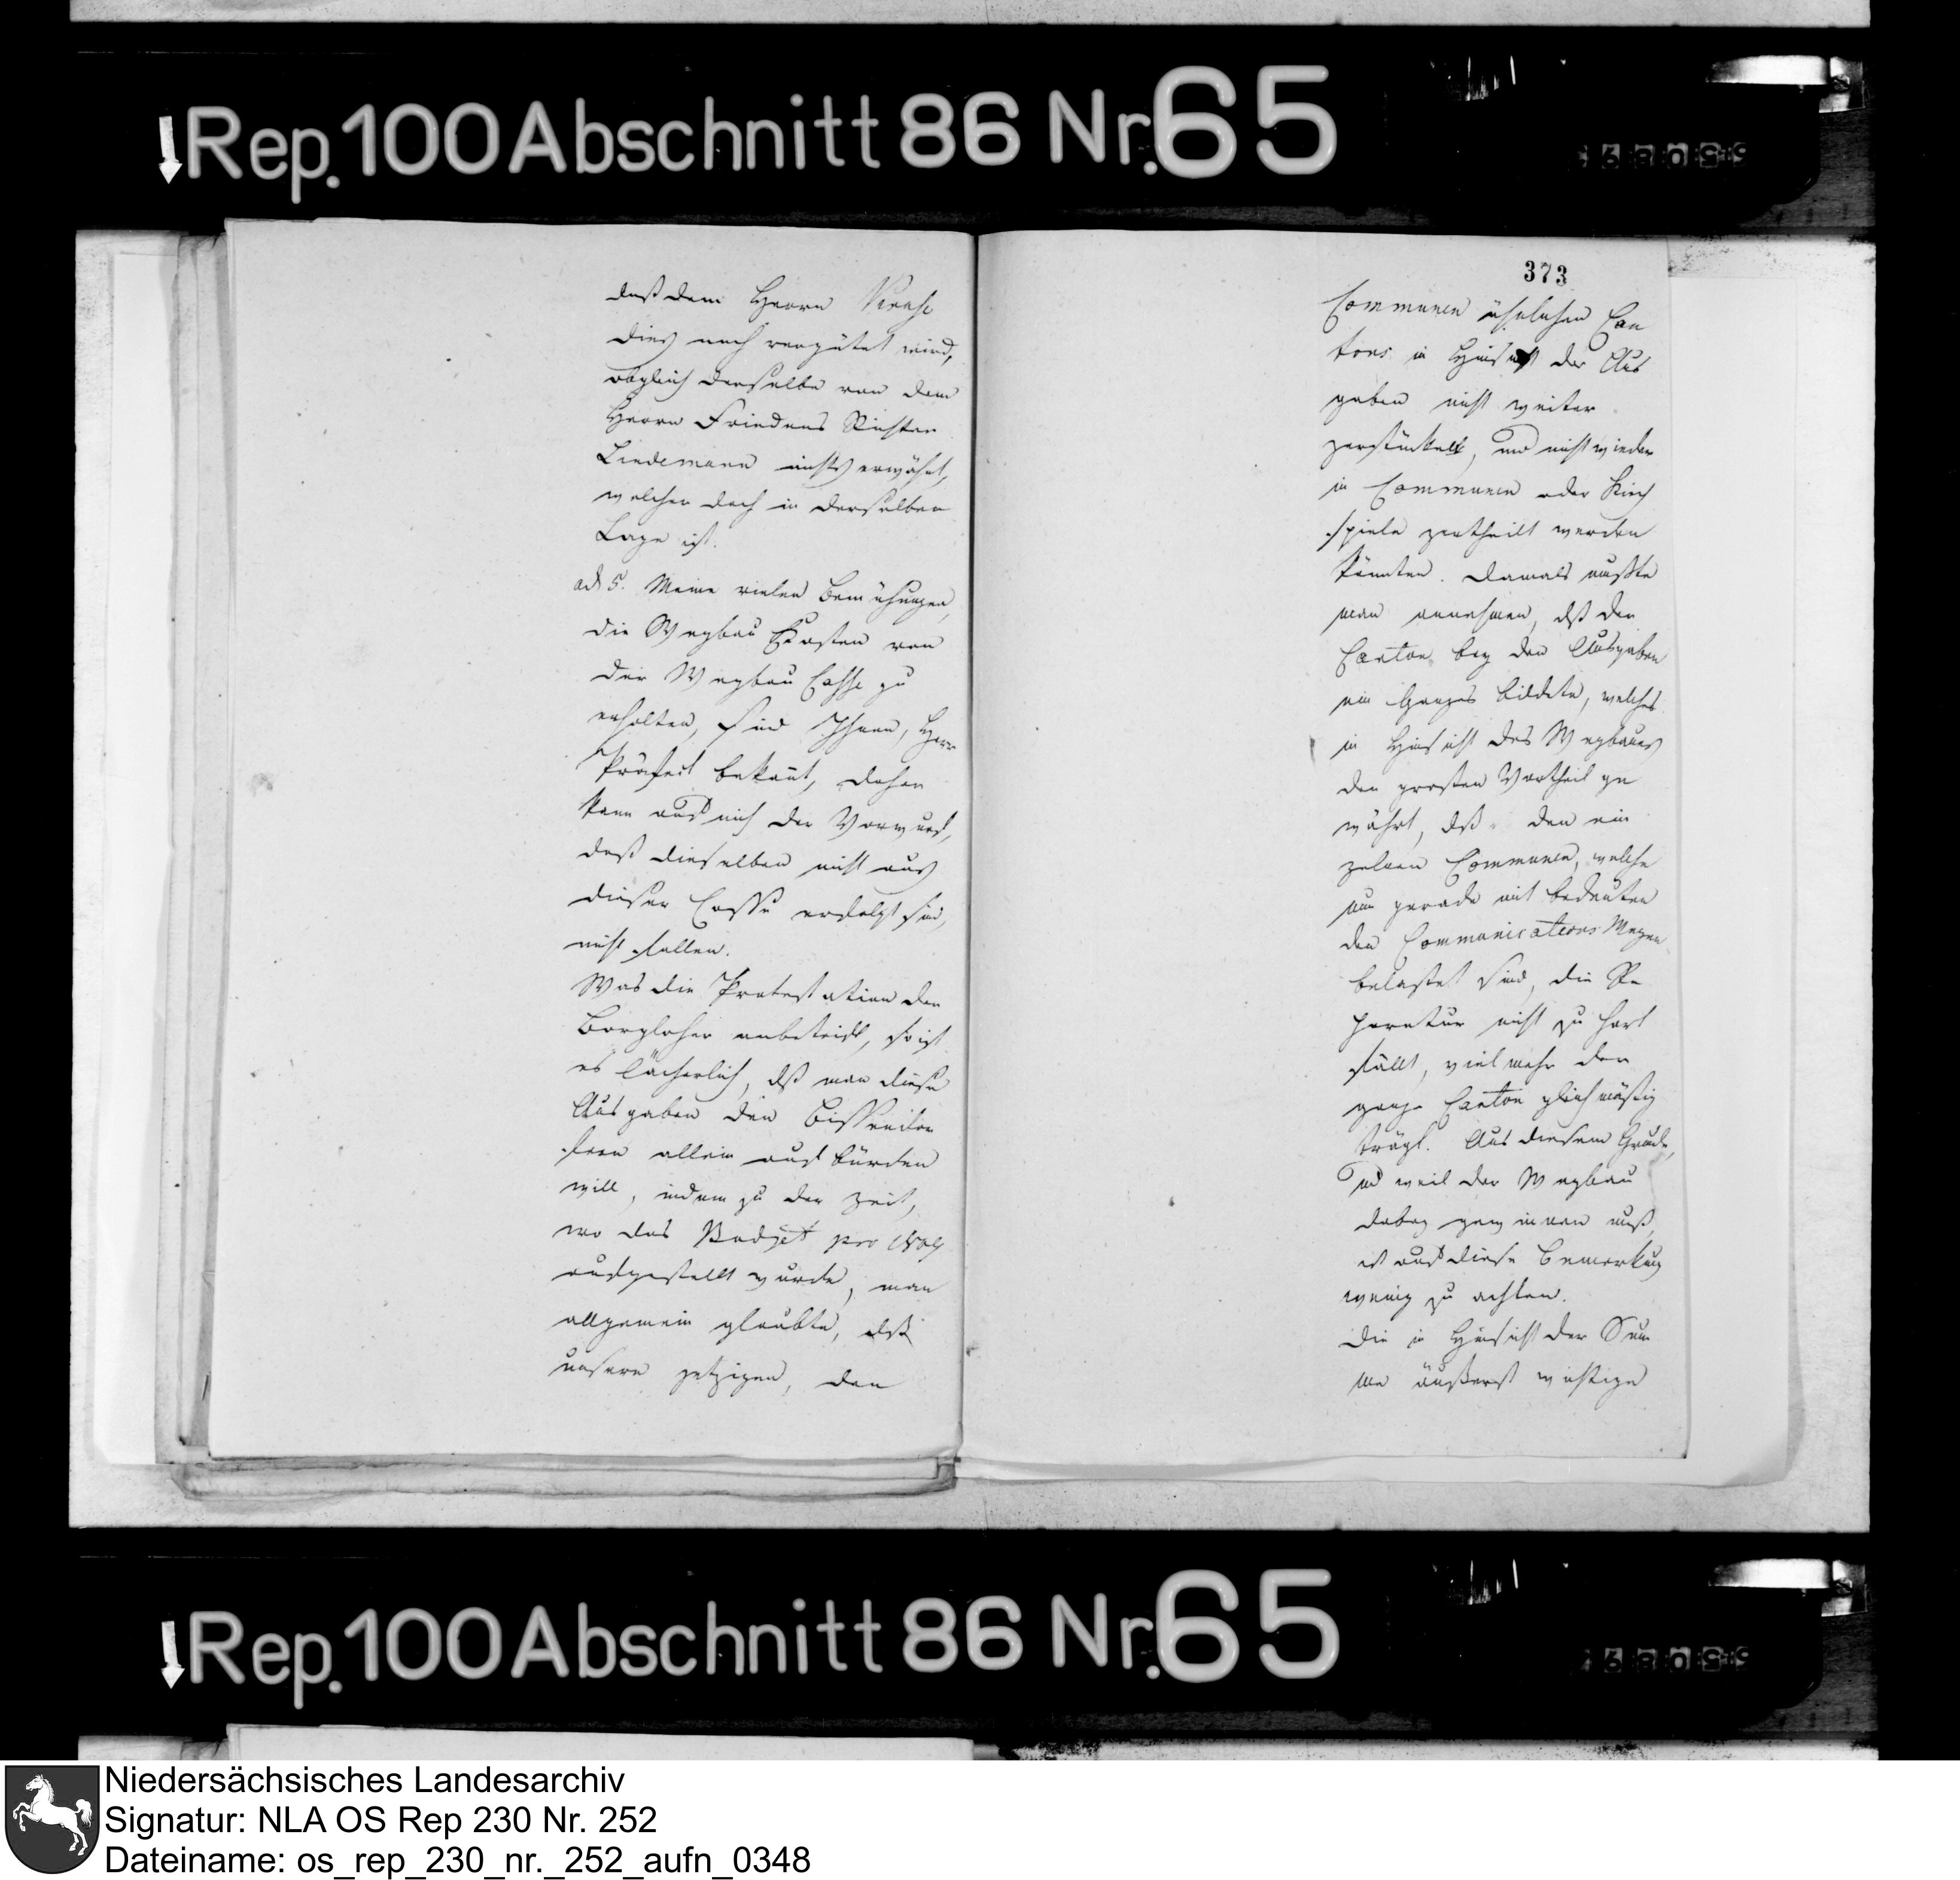 Rep. 100 Abschnitt 86 Nr. 65
daß dem Herrn
dies noch vergütet wird,
obgleich derselbe von dem
Herrn Friedens Richter
Lindemann nichts erwähnt,
welcher doch in derselben
Lage ist.
ad 5. Meine vielen Bemühungen,
die Wegbau Kosten von
der Wegbau Casse zu
erhalten, sind Ihnen, Herr
Präfect bekannt, daher
kann auf mich der Vorwurf,
daß dieselben nicht aus
dieser Casse erfolgt sind,
nicht fallen.
Was die Protestation der
Borgloher anbetrifft, so ist
es lächerlich, dß man diese
Ausgaben den Bissendor
fern allein aufbürden
will, indem zu der Zeit,
wo das Budjet pro 1809
aufgestellt wurde, man
allgemein glaubte, dß
unsere jetzigen, den
373
Communen ähnlichen Can
tons in Hinsicht der Aus
gaben nicht weiter
zerstückelt, und nicht wieder
in Communen oder Kirch
spiele zertheilt werden
könnten. Damals mußte
man annehmen, dß der
Canton bey den Ausgaben
ein Ganzes bildete, welches
in Hinsicht des Wegbaues
den großen Vortheil ge
währt, dß den ein
zelnen Communen, welche
nun gerade mit bedeuten
den Communications Wegen
belastet sind, die Re
paratur nicht zu hart
fällt, vielmehr der
ganze Canton gleichmäßig
trägt. Aus diesem Grunde,
und weil der Wegbau
dabey gewinnen muß,
ist auf diese Bemerkung
wenig zu achten.
Die in Hinsicht der Sum
me äußerst wichtige
Rep. 100 Abschnitt 86 Nr. 65
Niedersächsisches Landesarchiv
Signatur: NLA OS Rep 230 Nr. 252
Dateiname: os_rep_230_nr._252_aufn_0348